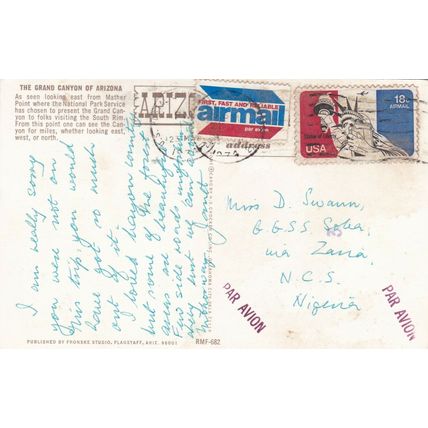 THE GRAND CANYON OF ARIZONA
As seen looking east from Mather
Point where the National Park Service
has chosen to present the Grand Can-
yon to folks visiting the South Rim.
From this point one can see the Can-
yon for miles, whether looking east,
west, or north.
ARIZ
FIRST, FAST AND RELIABLE
airmail
par avion
address
18c
AIRMAIL
Statue of Liberty
USA
I am really sorry
you were not on
this trip you would
have got so much
out of it.
I loved Canyon
but some of the
areas are beautiful
Few side roads
they
Janet
Miss D. Swann,
G.G.S.S.
via Zaria
N.C.S.
Nigeria
PAR AVION
PAR AVION
PUBLISHED BY FRONSKE STUDIO, FLAGSTAFF, ARIZ. 86001
RMF-682